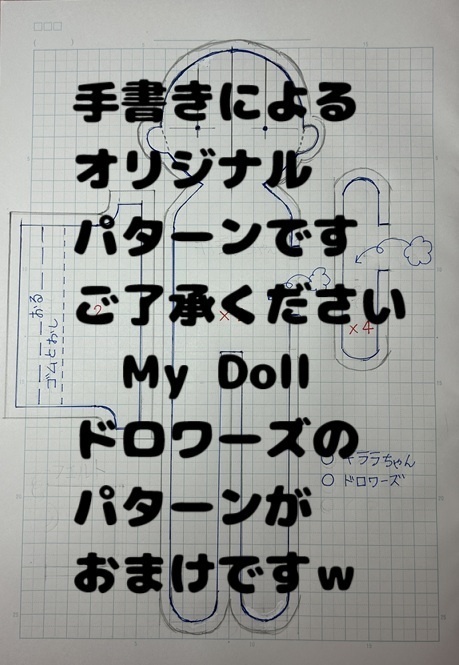 手書きによる
オリジナル
パターンです
ご了承ください
My Doll
ドロワーズの
パターンが
おまけですｗ
おる
ゴムとおし
×4
ララちゃん
○ ドロワーズ